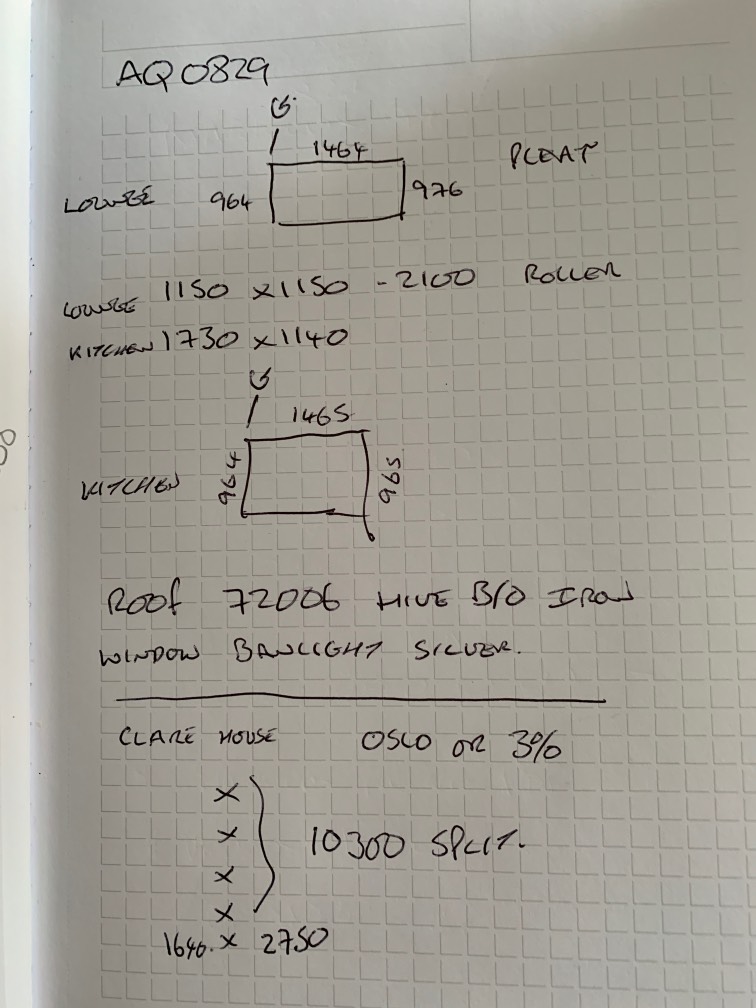 AQ0829
G
1464 PLEAT
LOUNGE 964 976
LOUNGE 1150 x1150 - 2100 ROLLER
KITCHEN 1730 x1140
G
1465
KITCHEN 964 965
ROOF 72006 HIVE B/O IRON
WINDOW BANLIGHT SILVER.
CLARE HOUSE OSLO OR 3%
x
x
x
x
10300 SPLIT.
1640. x 2750